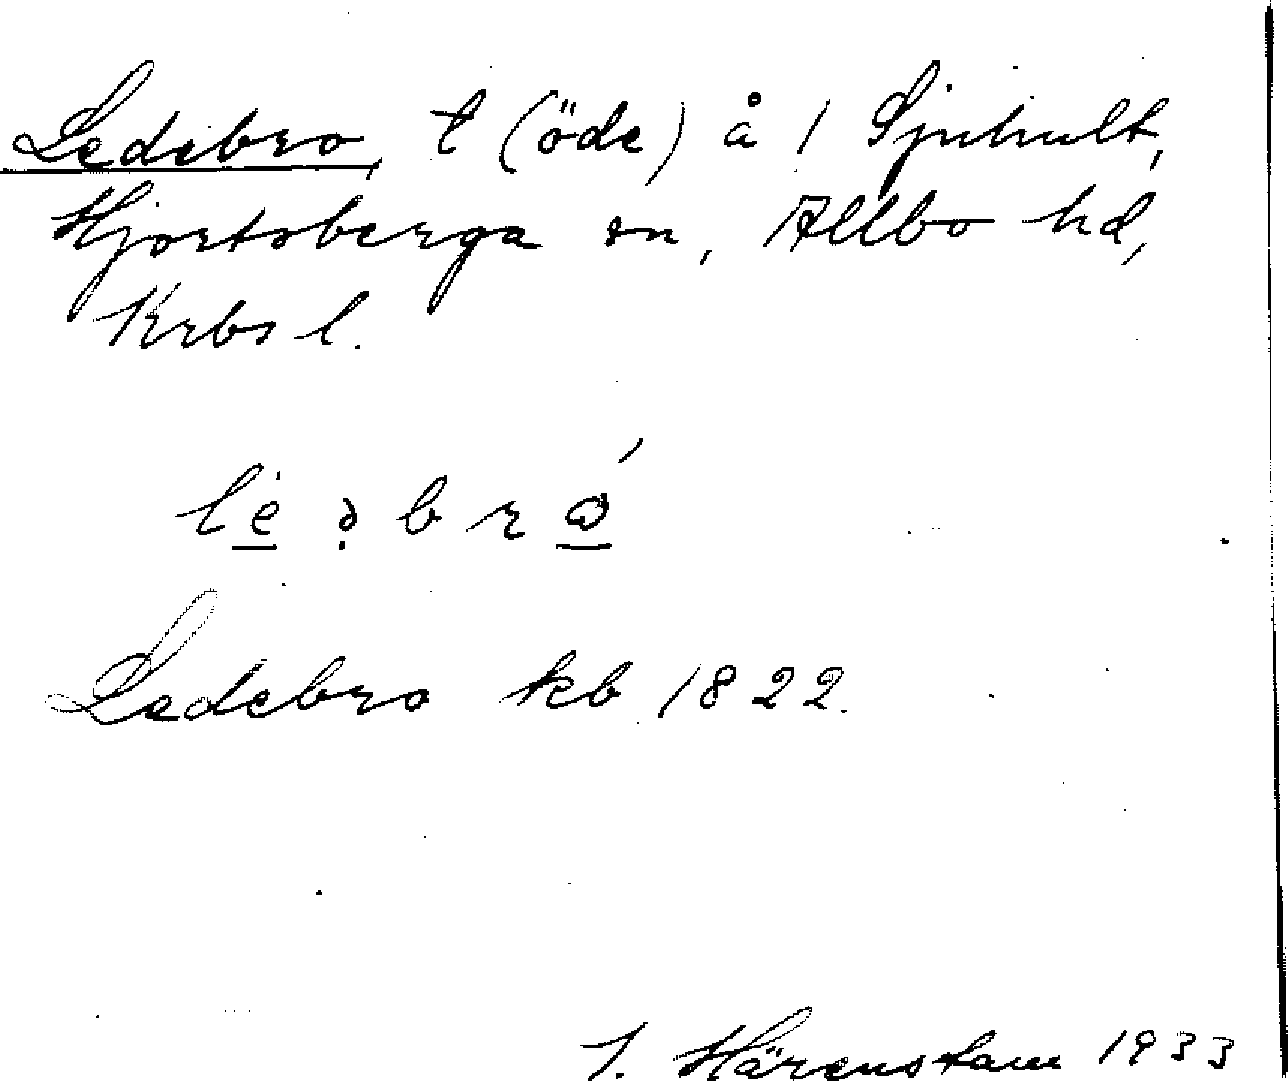 Ledebro, t (öde) å 1 Sjuhult,
Hjortsberga sn, Allbo hd,
Krbs l.
Ledebro kb 1822.
J. Härenstam 1933